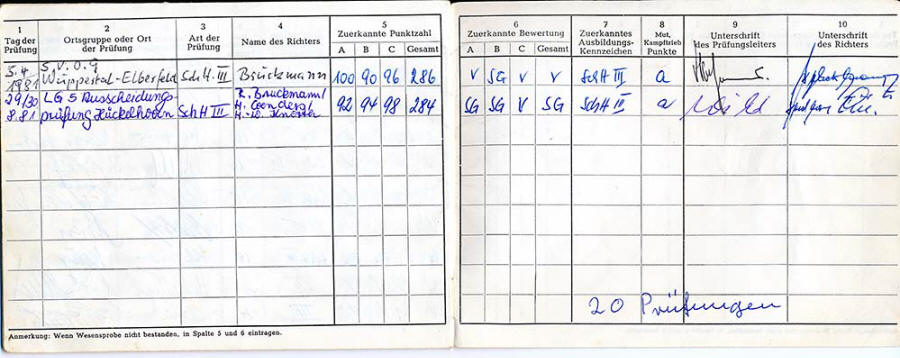 1 2 3 4 5 6 7 8 9 10
Tag der Prüfung Ortsgruppe oder Ort der Prüfung Art der Prüfung Name des Richters Zuerkannte Punktzahl Zuerkannte Bewertung Zuerkanntes Ausbildungs-Kennzeichen Mut, Kampftrieb Punkte Unterschrift des Prüfungsleiters Unterschrift des Richters
A B C Gesamt A B C Gesamt
5.4. 1981 S.V.O.G Wuppertal-Elberfeld SchH. III Brückmann 100 90 96 286 V SG V V SchH III a
29/30 8.81 LG 5 Ausscheidungs-prüfung Hückelhoven SchH III 92 94 98 284 SG SG V SG SchH III a
20 Prüfungen
Anmerkung: Wenn Wesensprobe nicht bestanden, in Spalte 5 und 6 eintragen.